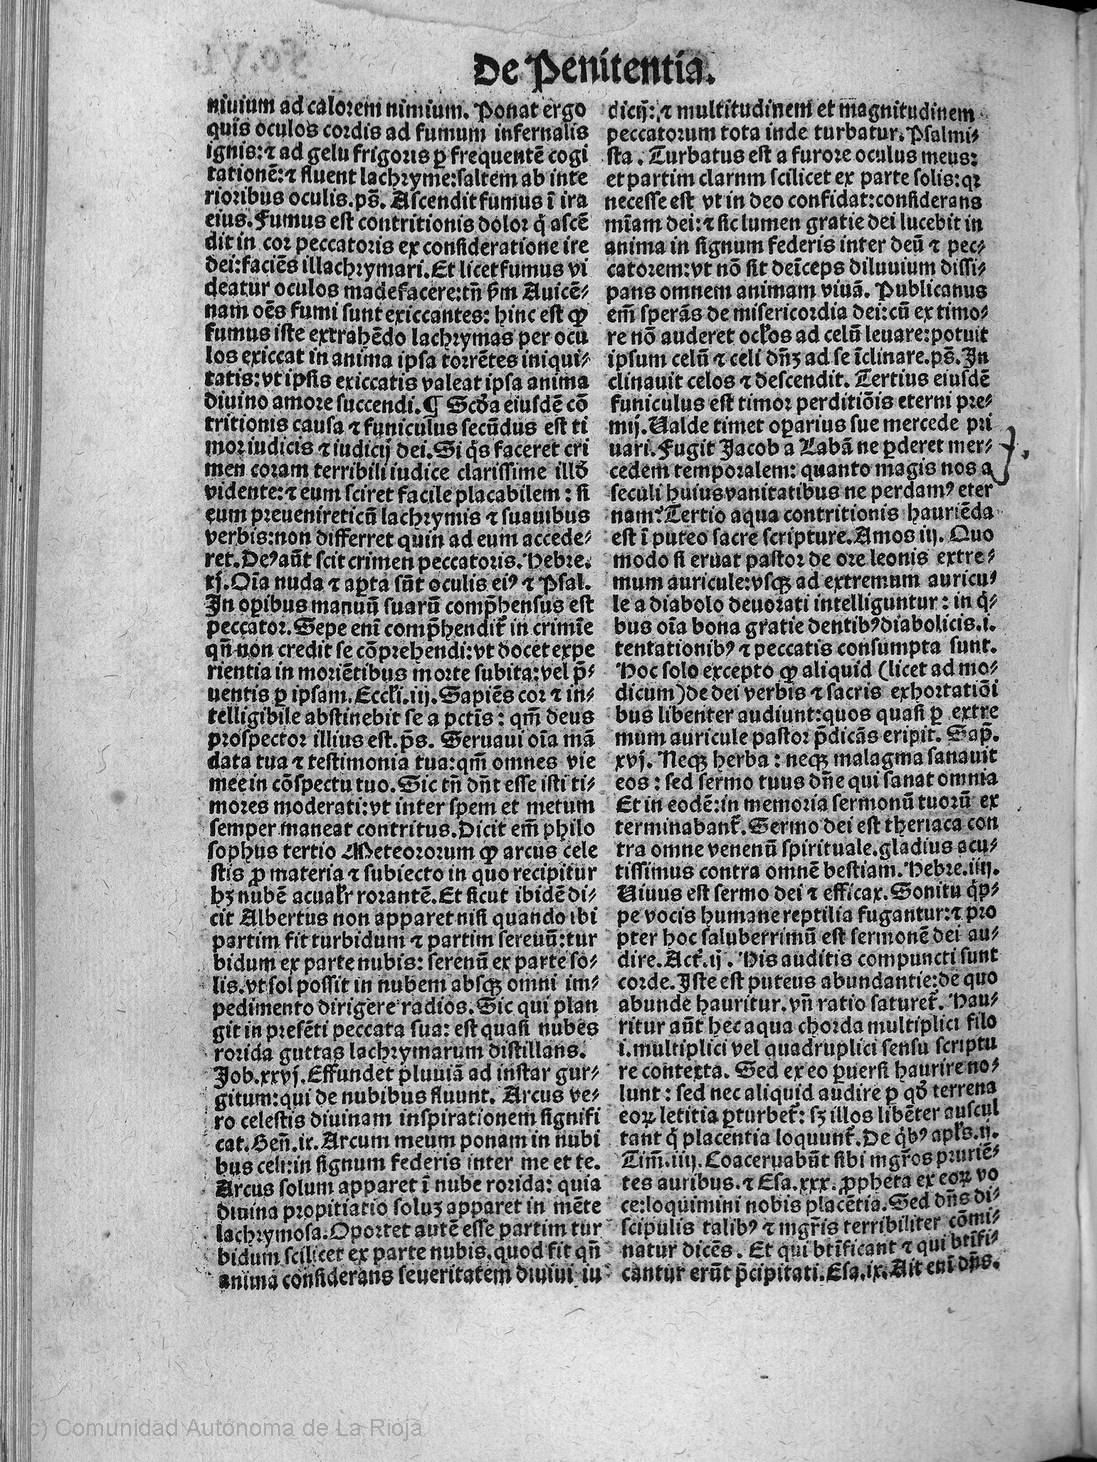 De Penitentia.
niuium ad calorem nimium. Ponat ergo
quis oculos cordis ad fumum infernalis
ignis: ⁊ ad gelu frigoris ꝑ frequentē cogi
tationē: ⁊ fluent lachryme: saltem ab inte
rioribus oculis. ps̄. Ascendit fumus ī ira
eius. Fumus est contritionis dolor q̇ ascē
dit in cor peccatoris ex consideratione ire
dei: faciēs illachrymari. Et licet fumus vi
deatur oculos madefacere: tn̄ ẜm Auicē⸗
nam oēs fumi sunt exiccantes: hinc est ꝙ
fumus iste extrahēdo lachrymas per ocu
los exiccat in anima ipsa torrētes iniqui⸗
tatis: vt ipsis exiccatis valeat ipsa anima
diuino amore succendi. ¶ Scd̄a eiusdē cō
tritionis causa ⁊ funiculus secūdus est ti
mor iudicis ⁊ iudicij dei. Si q̇s faceret cri
men coram terribili iudice clarissime illo
vidente: ⁊ eum sciret facile placabilem: si
eum preueniret cū lachrymis ⁊ suauibus
verbis: non differret quin ad eum accede⸗
ret. Deꝰ aūt scit crimen peccatoris. Hebre.
xj. Oīa nuda ⁊ aꝑta sūt oculis eiꝰ ⁊ Psal.
In oꝑibus manuū suarū comp̄hensus est
peccator. Sepe enī comp̄hendit̄ in crimīe
qn̄ non credit se cōprehendi: vt docet expe
rientia in moriētibus morte subita: vel p̄⸗
uentis ꝑ ipsam. Eccl̄i. iij. Sapiēs cor ⁊ in⸗
telligibile abstinebit se a pctīs: qm̄ deus
prospector illius est. ps̄. Seruaui oīa mā
data tua ⁊ testimonia tua: qm̄ omnes vie
mee in cōspectu tuo. Sic tn̄ dn̄t esse isti ti⸗
mores moderati: vt inter spem et metum
semper maneat contritus. Dicit em̄ philo
sophus tertio Meteororum ꝙ arcus cele
stis ꝓ materia ⁊ subiecto in quo recipitur
hꝫ nubē acualr̄ rorantē. Et sicut ibidē di⸗
cit Albertus non apparet nisi quando ibi
partim fit turbidum ⁊ partim serenū: tur
bidum ex parte nubis: serenū ex parte so⸗
lis. vt sol possit in nubem absqꝫ omni im⸗
pedimento dirigere radios. Sic qui plan
git in presēti peccata sua: est quasi nubes
rorida guttas lachrymarum distillans.
Job. xxvj. Effundet pluuiā ad instar gur⸗
gitum: qui de nubibus fluunt. Arcus ve⸗
ro celestis diuinam inspirationem signifi
cat. Gen̄. ix. Arcum meum ponam in nubi
bus celi: in signum federis inter me et te.
Arcus solum apparet ī nube rorida: quia
diuina propitiatio soluꝫ apparet in mēte
lachrymosa: Oportet autē esse partim tur
bidum scilicet ex parte nubis. quod fit qn̄
anima considerans seueritatem diuini iu
dicij: ⁊ multitudinem et magnitudinem
peccatorum tota inde turbatur. Psalmi⸗
sta. Turbatus est a furore oculus meus:
et partim clarum scilicet ex parte solis: qꝛ
necesse est vt in deo confidat: considerans
mīam dei: ⁊ sic lumen gratie dei lucebit in
anima in signum federis inter deū ⁊ pec⸗
catorem: vt nō sit deīceps diluuium dissi⸗
pans omnem animam viuā. Publicanus
em̄ sperās de misericordia dei: cū ex timo⸗
re nō auderet ocl̄os ad celū leuare: potuit
ipsum celū ⁊ celi dn̄ꝫ ad se īclinare. ps̄. In
clinauit celos ⁊ descendit. Tertius eiusdē
funiculus est timor perditiōis eterni pre⸗
mij. Ualde timet oꝑarius sue mercede pri
uari. Fugit Jacob a Labā ne ꝑderet mer⸗
cedem temporalem: quanto magis nos a
seculi huius vanitatibus ne perdamꝰ eter
nam? Tertio aqua contritionis hauriēda
est ī puteo sacre scripture. Amos iij. Quo
modo si eruat pastor de ore leonis extre⸗
mum auricule: vsqꝫ ad extremum auricu⸗
le a diabolo deuorati intelliguntur: in q̇⸗
bus oīa bona gratie dentibꝰ diabolicis. i.
tentationibꝰ ⁊ peccatis consumpta sunt.
Hoc solo excepto ꝙ aliquid (licet ad mo⸗
dicum) de dei verbis ⁊ sacris exhortatiōi
bus libenter audiunt: quos quasi ꝑ extre
mum auricule pastor p̄dicās eripit. Sap̄.
xvj. Neqꝫ herba: neqꝫ malagma sanauit
eos: sed sermo tuus dn̄e qui sanat omnia
Et in eodē: in memoria sermonū tuorū ex
terminabant̄. Sermo dei est theriaca con
tra omne venenū spirituale. gladius acu⸗
tissimus contra omnē bestiam. Hebre. iiij.
Uiuus est sermo dei ⁊ efficax. Sonitu q̇p⸗
pe vocis humane reptilia fugantur: ⁊ pro
pter hoc saluberrimū est sermonē dei au⸗
dire. Act̄. ij. His auditis compuncti sunt
corde. Iste est puteus abundantie: de quo
abunde hauritur. vn̄ ratio saturet̄. Hau⸗
ritur aūt hec aqua chorda multiplici filo
i. multiplici vel quadruplici sensu scriptu
re contexta. Sed ex eo ꝑuersi haurire no⸗
lunt: sed nec aliquid audire ꝑ qd̄ terrena
eoꝝ letitia ꝑturbet̄: sꝫ illos libēter auscul
tant q̇ placentia loquunt̄. De q̇bꝰ apl̄s. ij.
Tim̄. iiij. Coaceruabūt sibi mgr̄os pruriē⸗
tes auribus. ⁊ Esa. xxx. ꝓpheta ex eoꝝ vo
ce: loquimini nobis placētia. Sed dn̄s di⸗
scipulis talibꝰ ⁊ mgr̄is terribiliter cōmi⸗
natur dicēs. Et qui btīficant ⁊ qui btīfi⸗
cantur erūt p̄cipitati. Esa. ix. Ait enī dn̄s.
(c) Comunidad Autónoma de La Rioja